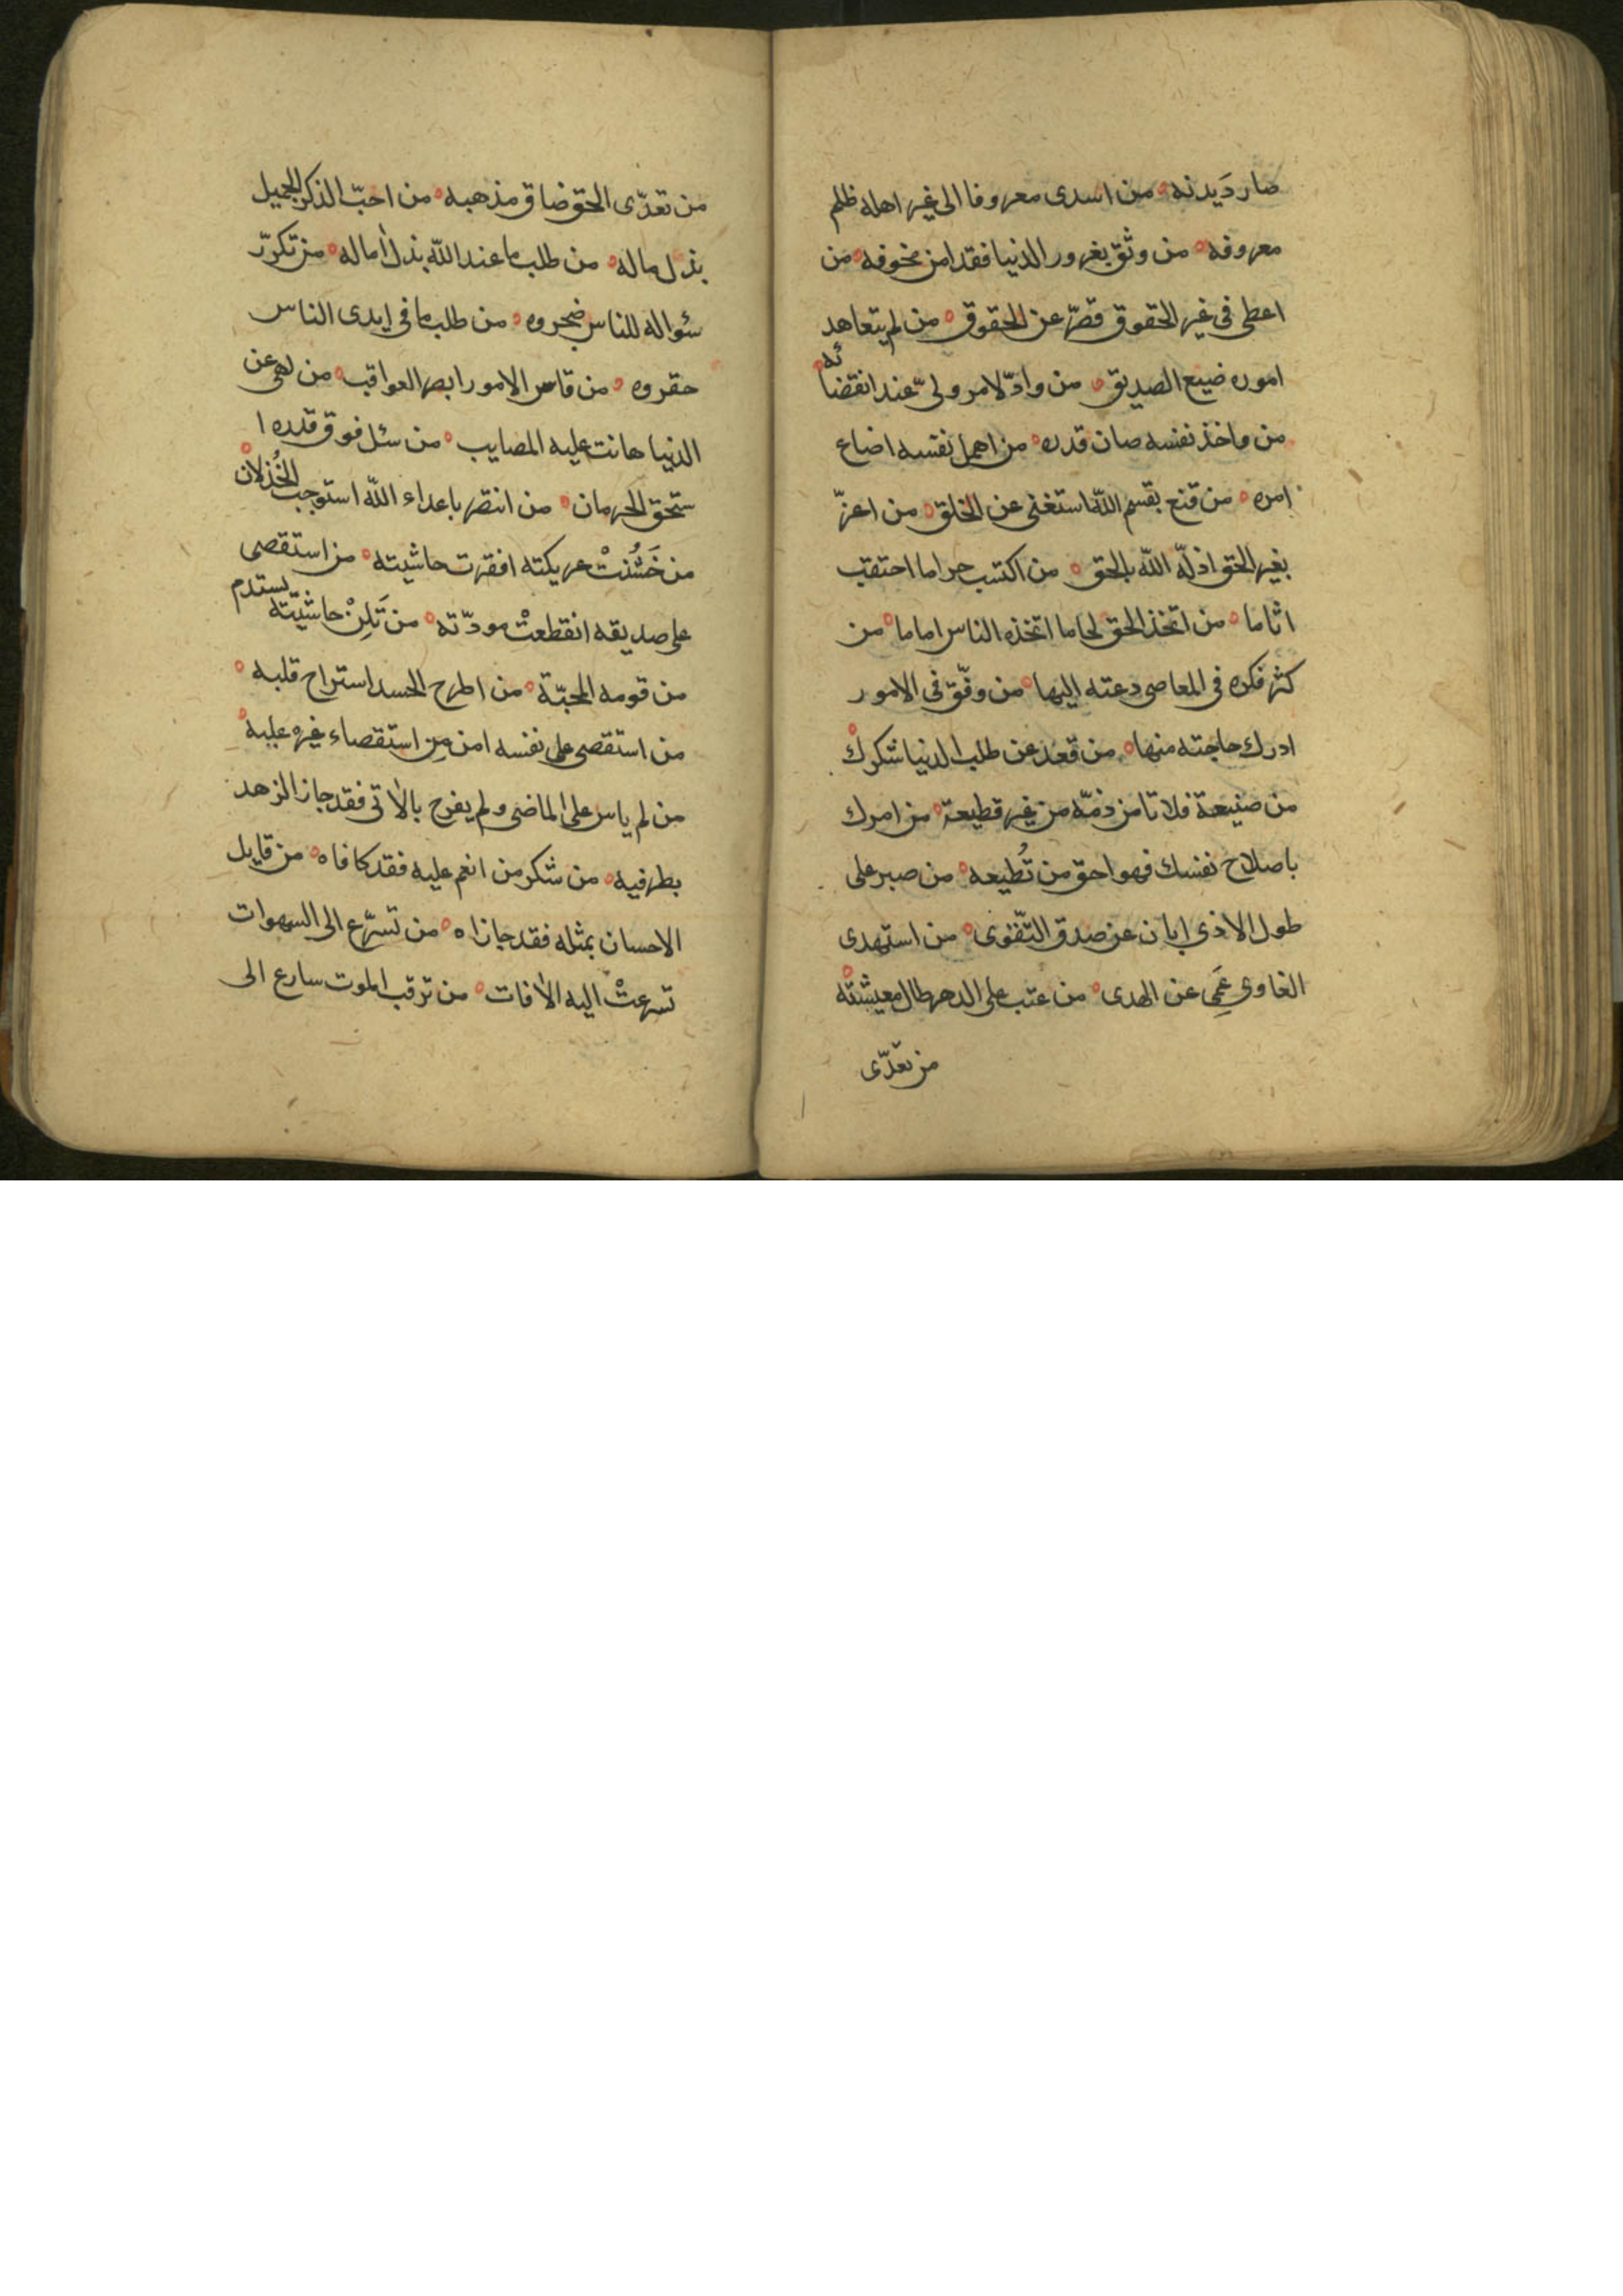 صار دَيدنه ه من اسدى معروفا الى غير اهله ظلم
معروفه ه من وثق بغرور الدنيا فقد امن مخوفه ه من
اعطى فى غير الحقوق قصّر عن الحقوق ه من لم يتعاهد
اموره ضيع الصديق ه من وادّ لامر ولىّ عند انقضائه ه
من واخذ نفسه صان قدره ه من اهمل نفسه اضاع
امره ه من قنع بقسم الله استغنى عن الخلق ه من اعزّ
بغير الحق اذلّه الله بالحق ه من اكتسب حراما احتقب
اثاما ه من اتخذ الحق لجاما اتخذه الناس اماما ه من
كثر فكره فى المعاصى دعته اليها ه من وفّق فى الامور
ادرك حاجته منها ه من قعد عن طلب الدنيا شكرك ه
من صنيعة فلا تامن ذمّه من غير قطيعة ه من امرك
باصلاح نفسك فهو احق من تُطيعه ه من صبر على
طول الاذى ابان عن صدق التّقوى ه من استهدى
الغاوى عَمِىَ عن الهدى ه من عتب على الدهر طال معيشته ه
من تعدّى
من تعدّى الحق ضاق مذهبه ه من احبّ الذكر الجميل
بذل ماله ه من طلب ما عند الله بذل اماله ه من تكرّر
سؤاله للناس ضجروه ه من طلب ما فى ايدى الناس
حقروه ه من قاس الامور ابصر العواقب ه من لهى عن
الدنيا هانت عليه المصايب ه من سئل فوق قدره ا
ستحق الحرمان ه من انتصر باعداء الله استوجب الخُذلان ه
من خَشُنتْ عريكته افقرت حاشيته ه من استقصى
على صديقه انقطعتْ مودّته ه من تَلِنْ حاشيّته يستدم
من قومه المحبّة ه من اطرح الحسد استراح قلبه ه
من استقصى على نفسه امن مِن استقصاء غيره عليه ه
من لم ياس على الماضى ولم يفرح بالاتى فقد حاز الزهد
بطرفيه ه من شكر من انعم عليه فقد كافاه ه من قابل
الاحسان بمثله فقد جازاه ه من تسرّع الى السهوات
تسرعتْ اليه الافات ه من ترقب الموت سارع الى